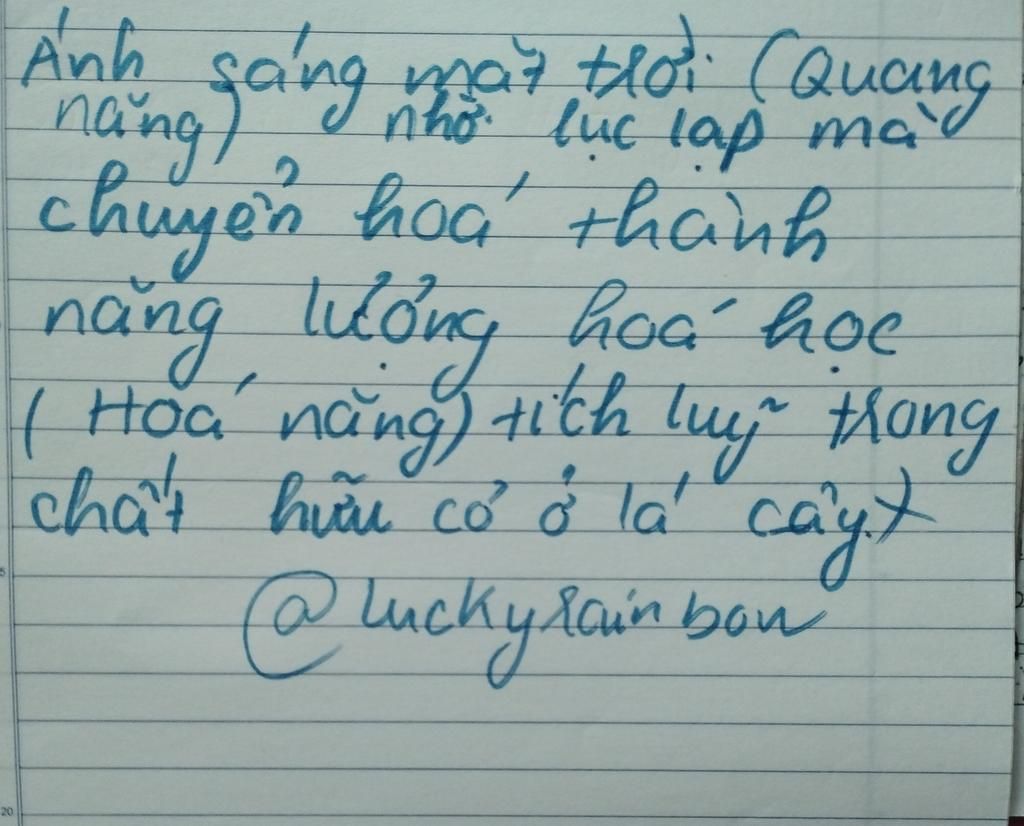 Ánh sáng mặt trời (Quang
năng) nhờ lục lạp mà
chuyển hoá thành
năng lượng hoá học
(Hoá năng) tích luỹ trong
chất hữu cơ ở lá cây.
@luckyrainbow
5
20